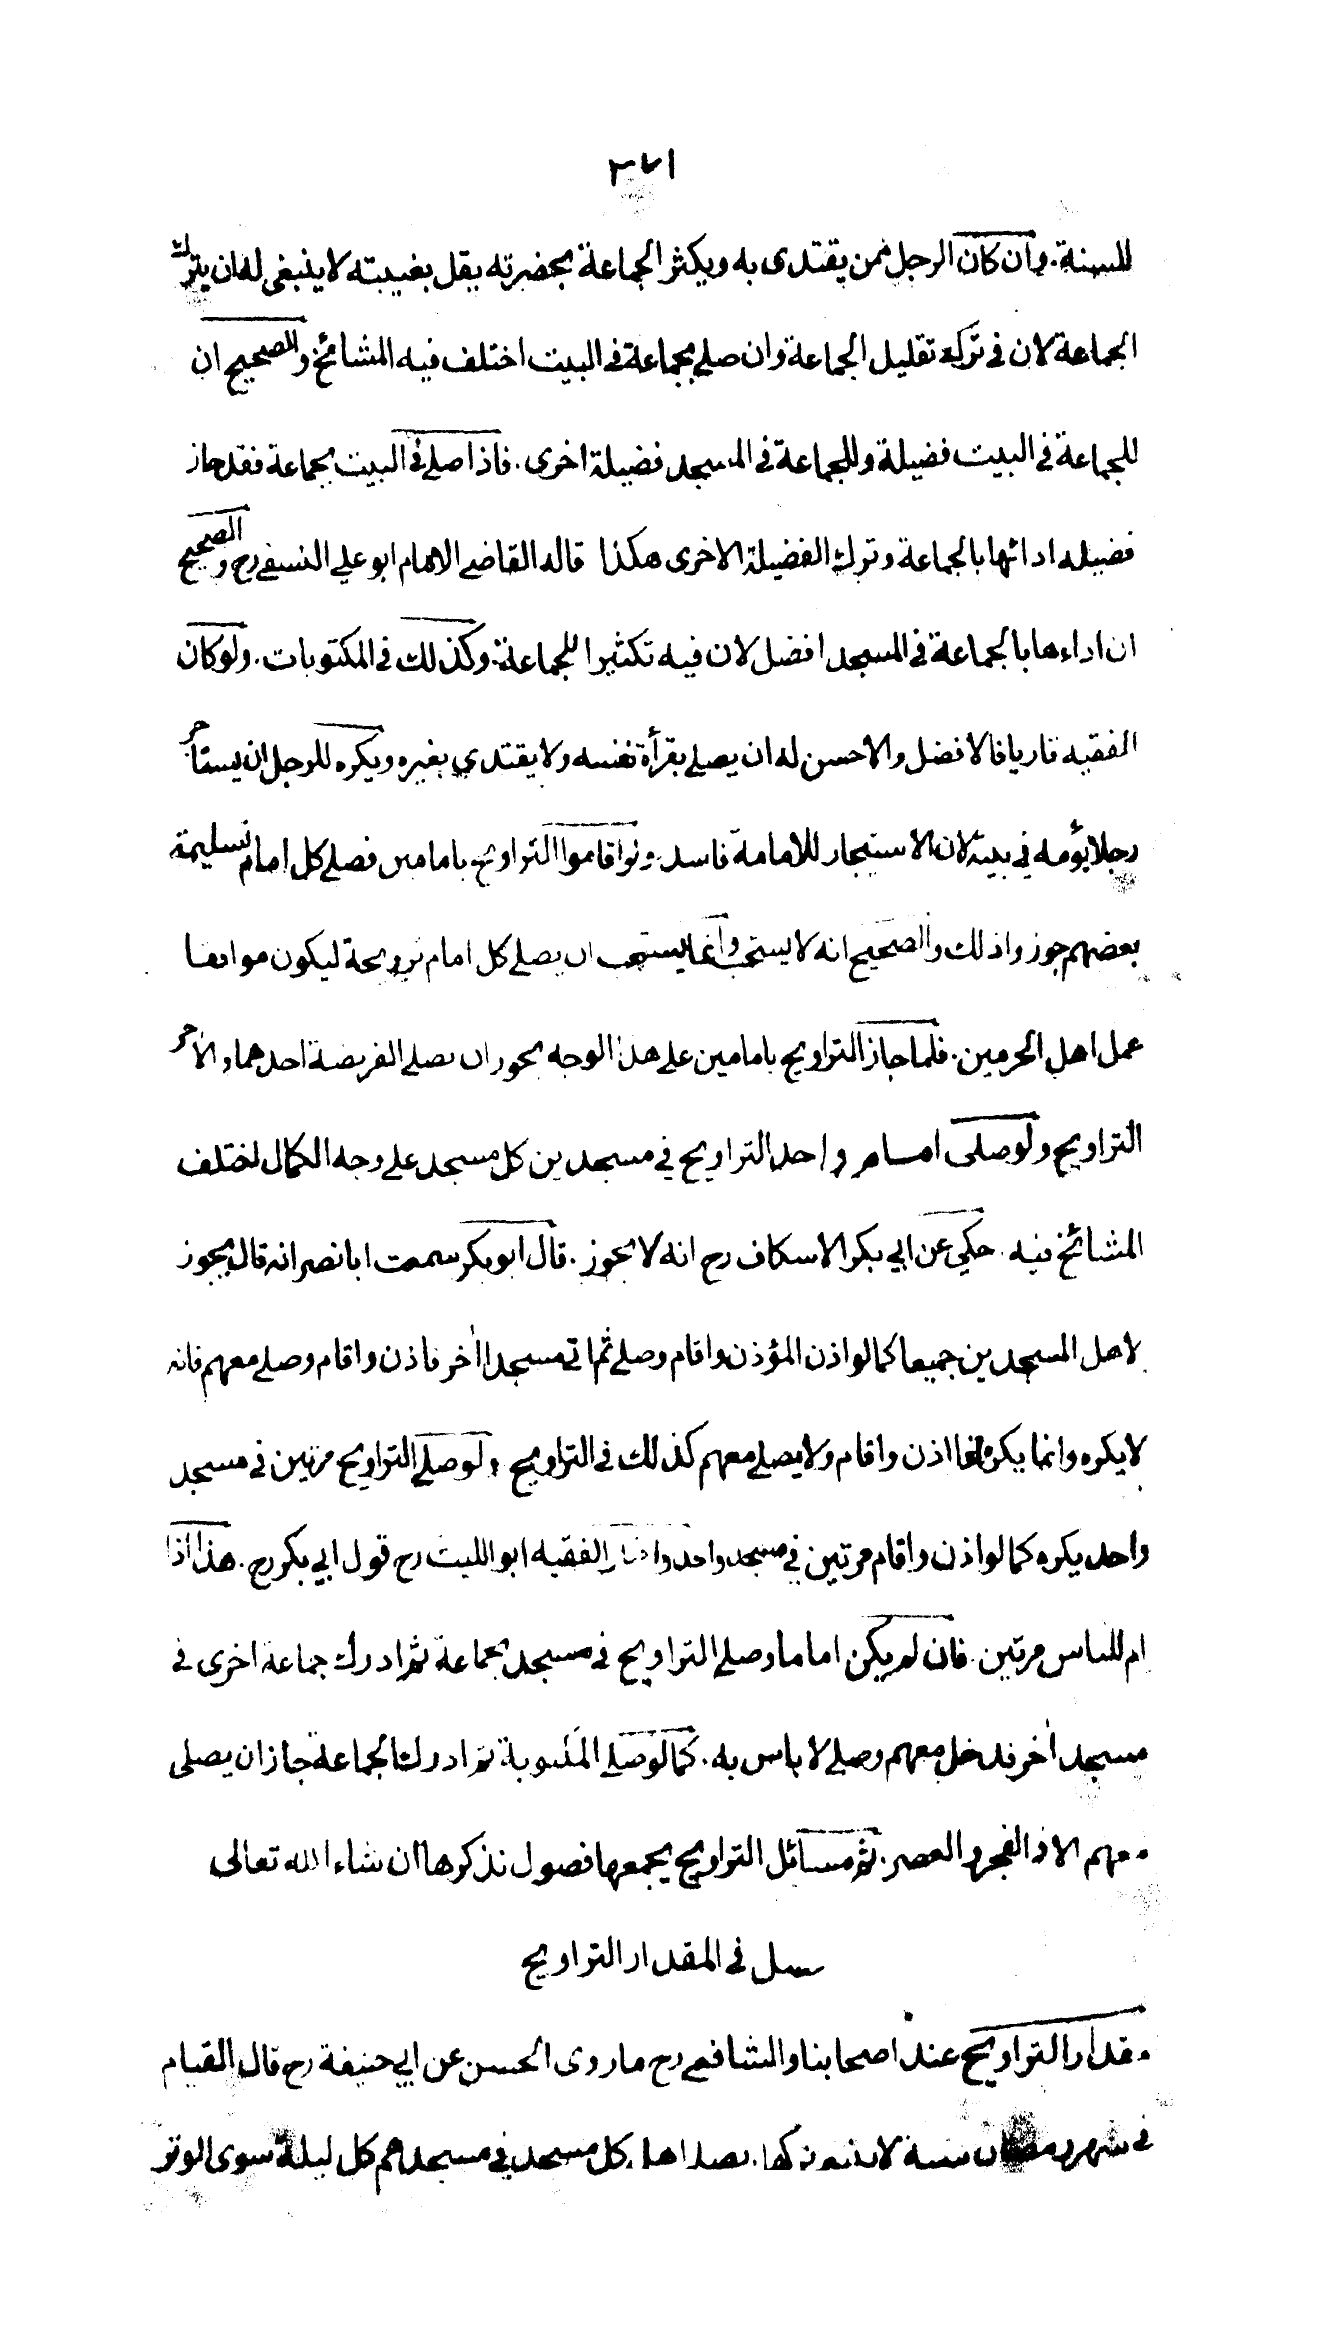 ٣٧١
للسنة. وان كان الرجل ممن يقتدى به ويكثر الجماعة بحضرته يقل بغيبته لا ينبغى له ان يترك
الجماعة لان فى تركه تقليل الجماعة وان صلے بجماعة فى البيت اختلف فيه المشائخ والصحيح ان
للجماعة فى البيت فضيلة وللجماعة فى المسجد فضيلة اخرى. فاذا صلے فى البيت بجماعة فقد حاز
فضيلة ادائها بالجماعة وترك الفضيلة الاخرى هكذا قاله القاضے الامام ابو علے النسفے رح والصحيح
ان اداءها بالجماعة فى المسجد افضل لان فيه تكثيرا للجماعة. وكذلك فى المكتوبات. ولو كان
الفقيه قاريا فالافضل والاحسن له ان يصلے بقرأة نفسه ولا يقتدي بغيره ويكره للرجل ان يستأجر
رجلا يؤمه في بيته لان الاستيجار للامامة فاسد. ولو اقاموا التراويح بامامين فصلے كل امام تسليمة
بعضهم جوزوا ذلك والصحيح انه لا يستحب وانما يستحب ان يصلے كل امام ترويحة ليكون موافقا
عمل اهل الحرمين. فلما جاز التراويح بامامين علے هذا الوجه يجوز ان يصلے الفريضة احدهما والآخر
التراويح ولو صلى امام واحد التراويح في مسجدين كل مسجد علے وجه الكمال اختلف
المشائخ فيه. حكي عن ابي بكر الاسكاف رح انه لا يجوز. قال ابو بكر سمعت ابا نصر انه قال يجوز
لاهل المسجدين جميعا كما لو اذن المؤذن واقام وصلے ثم اتى مسجدا اٰخر فاذن واقام وصلے معهم فانه
لا يكره وانما يكره اذا اذن واقام ولا يصلے معهم كذلك فى التراويح ولو صلے التراويح مرتين فى مسجد
واحد يكره كما لو اذن واقام مرتين في مسجد واحد واختار الفقيه ابو الليث رح قول ابي بكر رح. هذا اذا
ام للناس مرتين. فان لم يكن اماما وصلے التراويح فى مسجد بجماعة ثم ادرك جماعة اخرى فى
مسجد اٰخر فدخل معهم وصلے لا باس به. كما لو صلے المكتوبة ثم ادرك الجماعة جاز ان يصلى
معهم الا فى الفجر والعصر. ثم مسائل التراويح يجمعها فصول نذكرها ان شاء الله تعالى
فصل فى المقدار التراويح
مقدار التراويح عند اصحابنا والشافعے رح ما روى الحسن عن ابي حنيفة رح قال القيام
فى شهر رمضان سنة لا ينبغى تركها. يصلے اهل كل مسجد في مسجدهم كل ليلة سوى الوتر